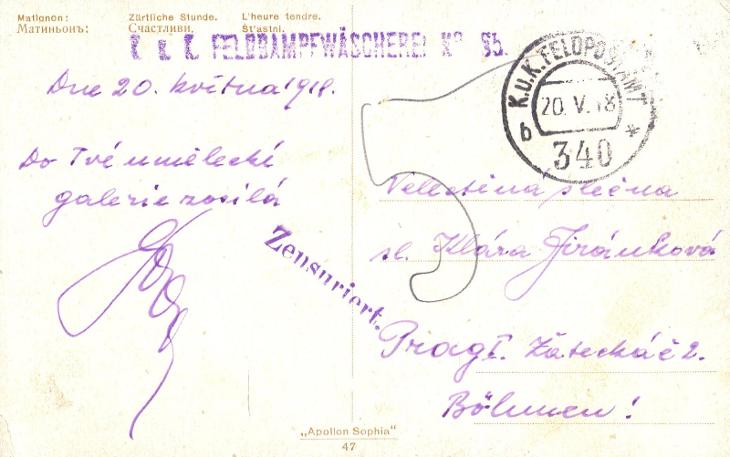 Matignon: Zärtliche Stunde. L'heure tendre.
Матиньонъ: Счастливи. Št'astni.
K. U. K. FELDDAMPFWÄSCHEREI Nº 95.
Dne 20. května 1918.
Do Tvé umělecké
galerie zasílá
Zensuriert.
K.U.K. FELDPOSTAMT
20. V. 18
b *
340
5
Velectěná slečna
sl. Klára Jiránková
Prag I. Žatecká č 2.
Böhmen!
„Apollon Sophia"
47